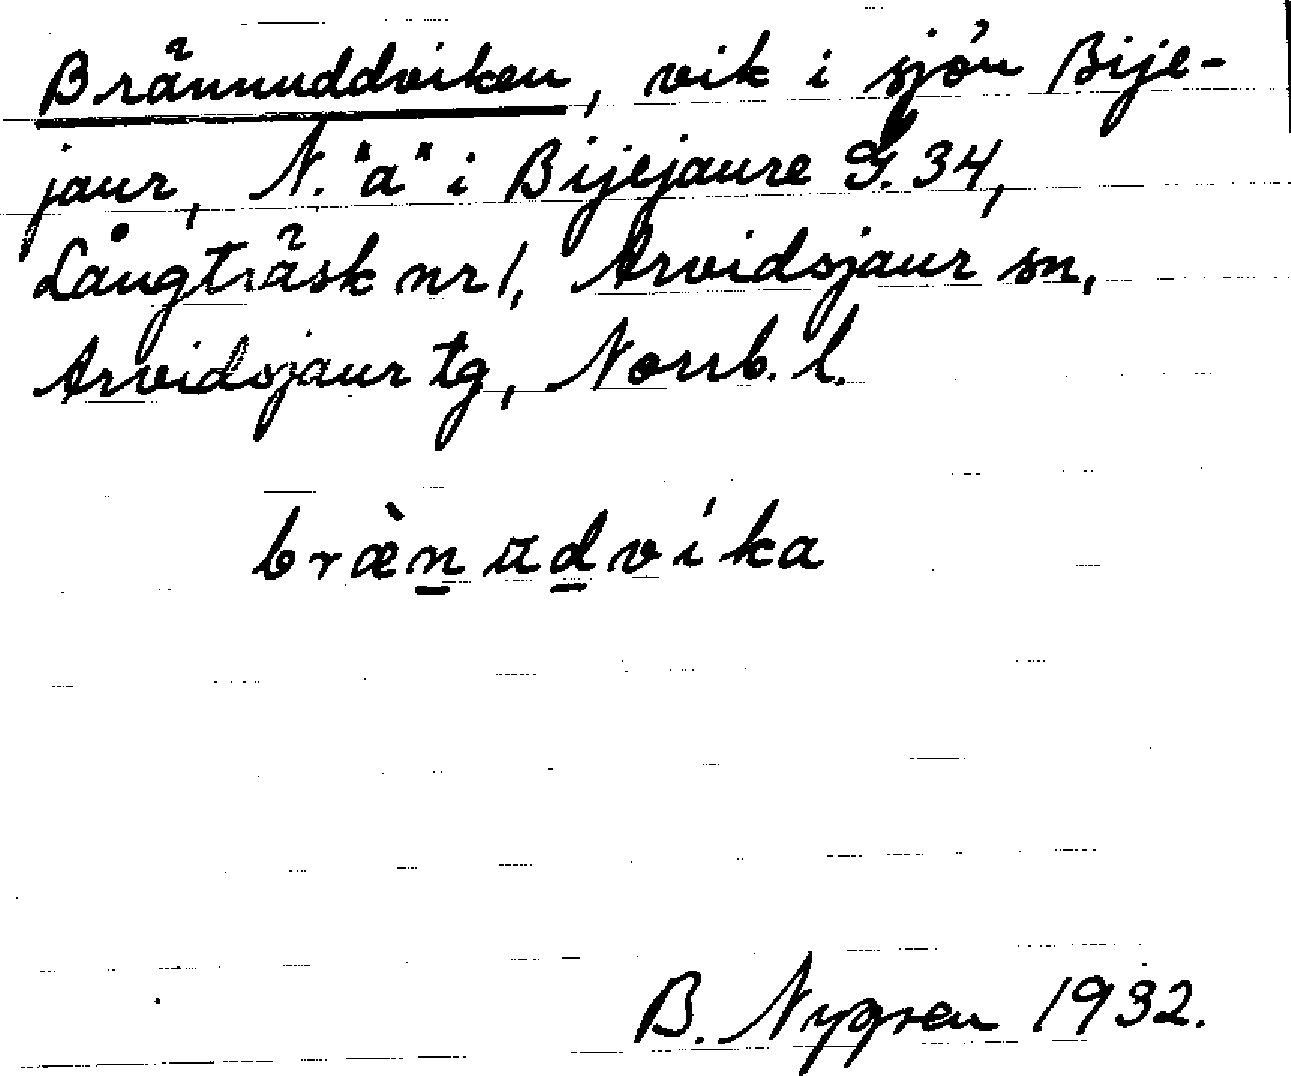 Brännuddviken, vik i sjön Bije-
jaur, N. "a" i Bijejaure G. 34,
Långträsk nr 1, Arvidsjaur sn,
Arvidsjaur tg, Norrb. l.
bræ̀n̲ ud̲víka
B. Nygren 1932.